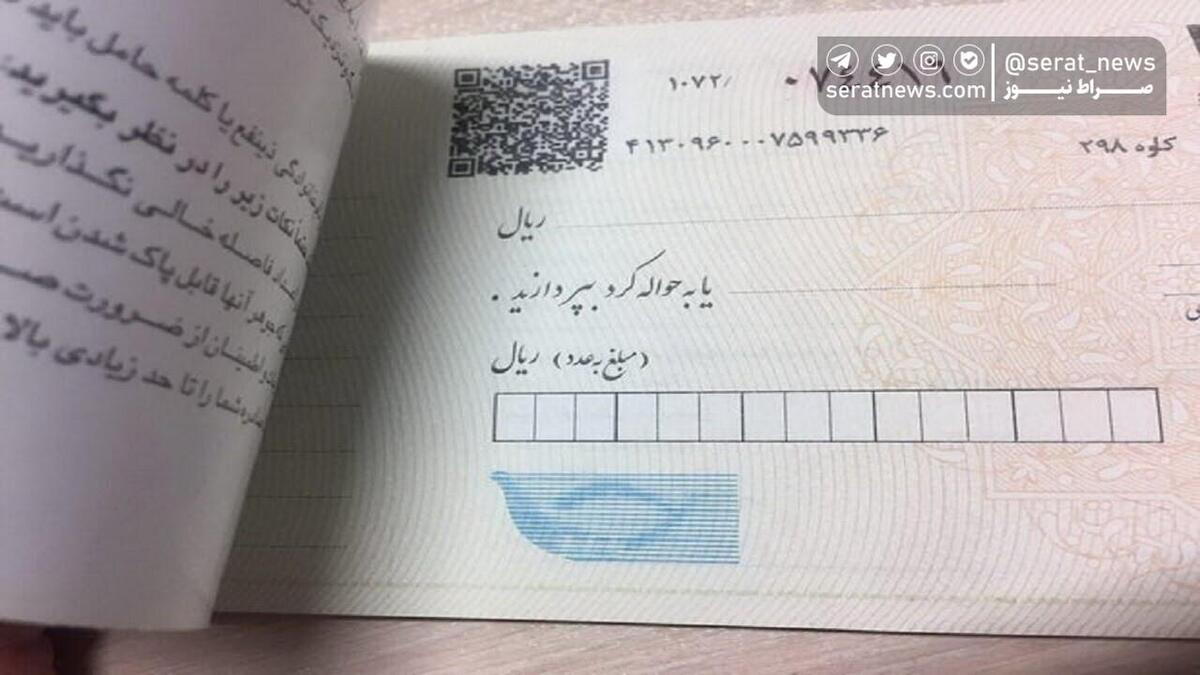 @serat_news
seratnews.com صراط نیوز
۱۰۷۲/
۴۱۳۰۹۶۰۰۰۷۵۹۹۳۳۶
کاوه ۲۹۸
ریال
یا به حواله کرد بپردازند .
(مبلغ به عدد) ریال
ذینفع یا کلمه حامل باید
نکات زیر را در نظر بگیرید:
فاصله خالی نگذارید
جوهر آنها قابل پاک شدن است
اطمینان از ضرورت
شما را تا حد زیادی بالا